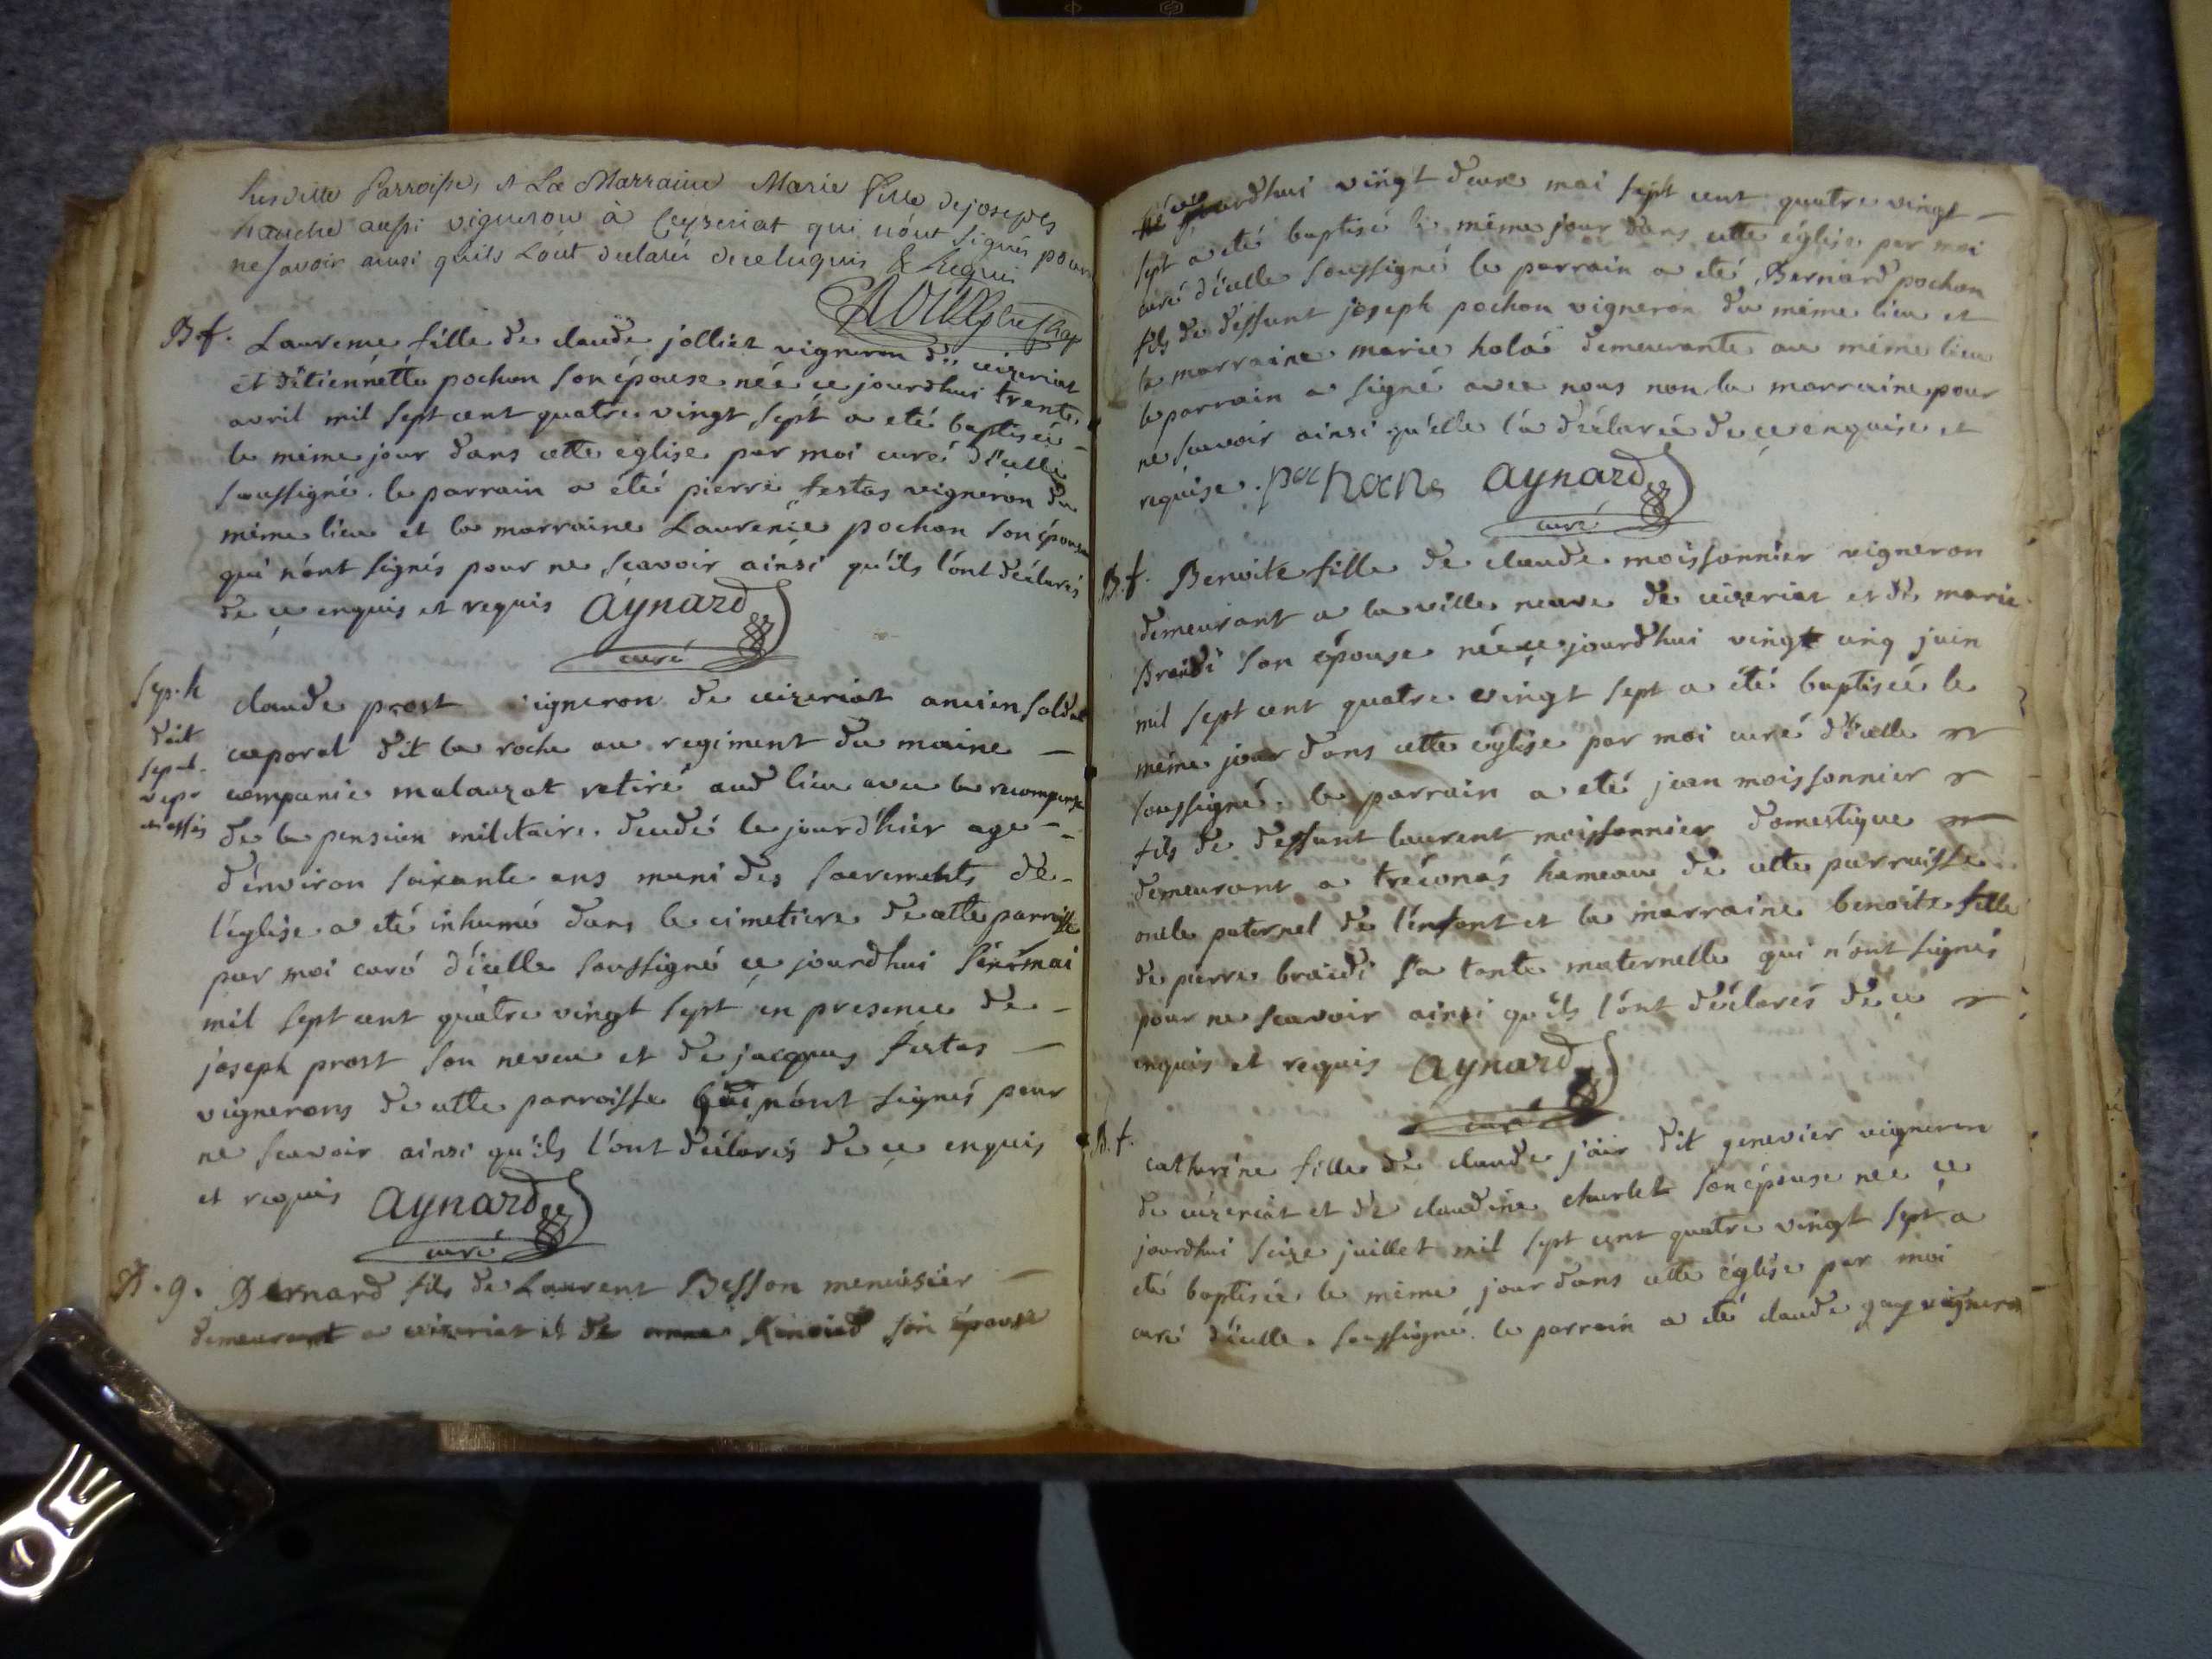 Parroisse, et La Marraine Marie fille de joseph
aussi vigneron à Ceyzeriat qui n'ont signés pour
ne savoir ainsi quils L'ont declaré de ce Enquis & Requis
B f. Laurence fille de claude jolliet vigneron de ceizeriat
et d'étiennette pochon son épouse née ce jourdhui trente
avril mil sept cent quatre vingt sept a eté baptisée
le même jour dans cette église par moi curé d'icelle
soussigné. le parrain a été pierre festas vigneron du
même lieu et la marraine Laurence pochon son épouse
qui n'ont signés pour ne scavoir ainsi qu'ils l'ont déclarés
de ce enquis et requis Aynard
curé
Sep. h
claude prost vigneron de ceizeriat ancien soldat
caporal dit la roche au regiment du maine
compagnie malauzat retiré aud lieu avec la recompense
de la pension militaire. decedé le jourd'hier age
d'environ soixante ans muni des sacrements de
l'église a eté inhumé dans le cimetiere de cette parroisse
par moi curé d'icelle soussigné ce jourdhui six mai
mil sept cent quatre vingt sept en presence de
joseph prost son neveu et de jacques festas
vignerons de cette parroisse qui n'ont signés pour
ne scavoir ainsi qu'ils l'ont déclarés de ce enquis
et requis Aynard
curé
B. g. Bernard fils de Laurent Besson menuisier
demeurant a ceizeriat et de anne son épouse
né ce jourdhui vingt deux mai sept cent quatre vingt
sept a eté baptisé le même jour dans cette église par moi
curé d'icelle soussigné le parrain a eté Bernard pochon
fils de deffunt joseph pochon vigneron du même lieu et
la marraine marie demeurante au même lieu
le parrain a signé avec nous non la marraine pour
ne scavoir ainsi qu'elle l'a déclarée de ce enquise et
requise. pochon Aynard
curé
B. f. Benoite fille de claude moissonnier vigneron
demeurant a la ville neuve de ceizeriat et de marie
Braidi son épouse née ce jourdhui vingt cinq juin
mil sept cent quatre vingt sept a été baptisée le
même jour dans cette église par moi curé d'icelle
soussigné. le parrain a eté jean moissonnier
fils de deffunt laurent moissonnier domestique
demeurant a tréconas hameau de cette parroisse
oncle paternel de l'enfant et la marraine benoite fille
de pierre braidi sa tante maternelle qui n'ont signés
pour ne scavoir ainsi qu'ils l'ont déclarés de ce
enquis et requis Aynard
curé
B. f.
catherine fille de claude jair dit genevier vigneron
de ceizeriat et de claudine charlet son épouse née ce
jourdhui seize juillet mil sept cent quatre vingt sept a
eté baptisée le même jour dans cette église par moi
curé d'icelle soussigné. le parrain a eté claude gay vigneron